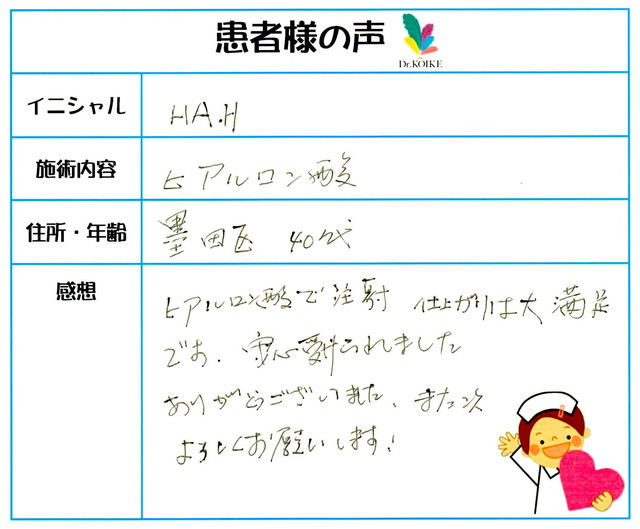 患者様の声
Dr.KOIKE
イニシャル HA.H
施術内容 ヒアルロン酸
住所・年齢 墨田区 40代
感想
ヒアルロン酸で注射 仕上がりは大満足
です。安心受けられました
ありがとうございました、また次
よろしくお願いします!